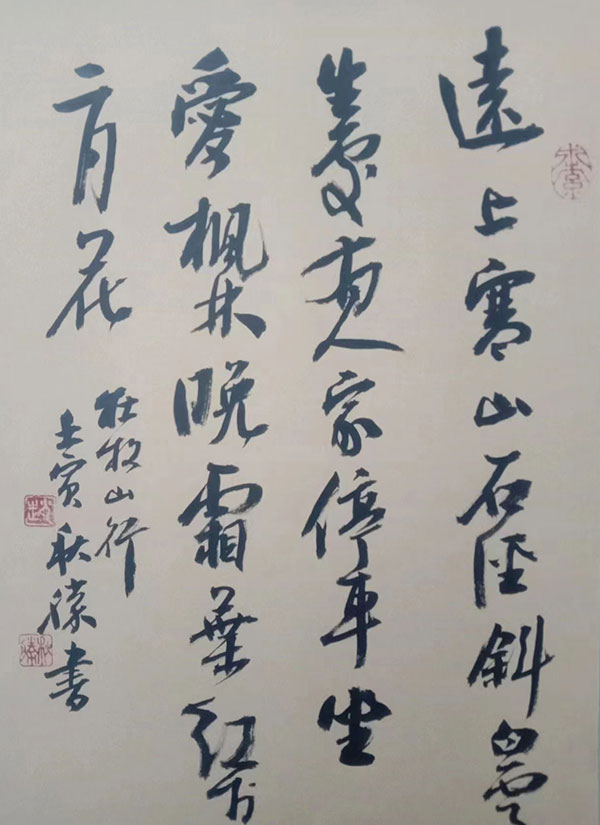 遠上寒山石徑斜白雲
生處有人家停車坐
愛楓林晚霜葉紅於
二月花
杜牧山行
壬寅秋滕書